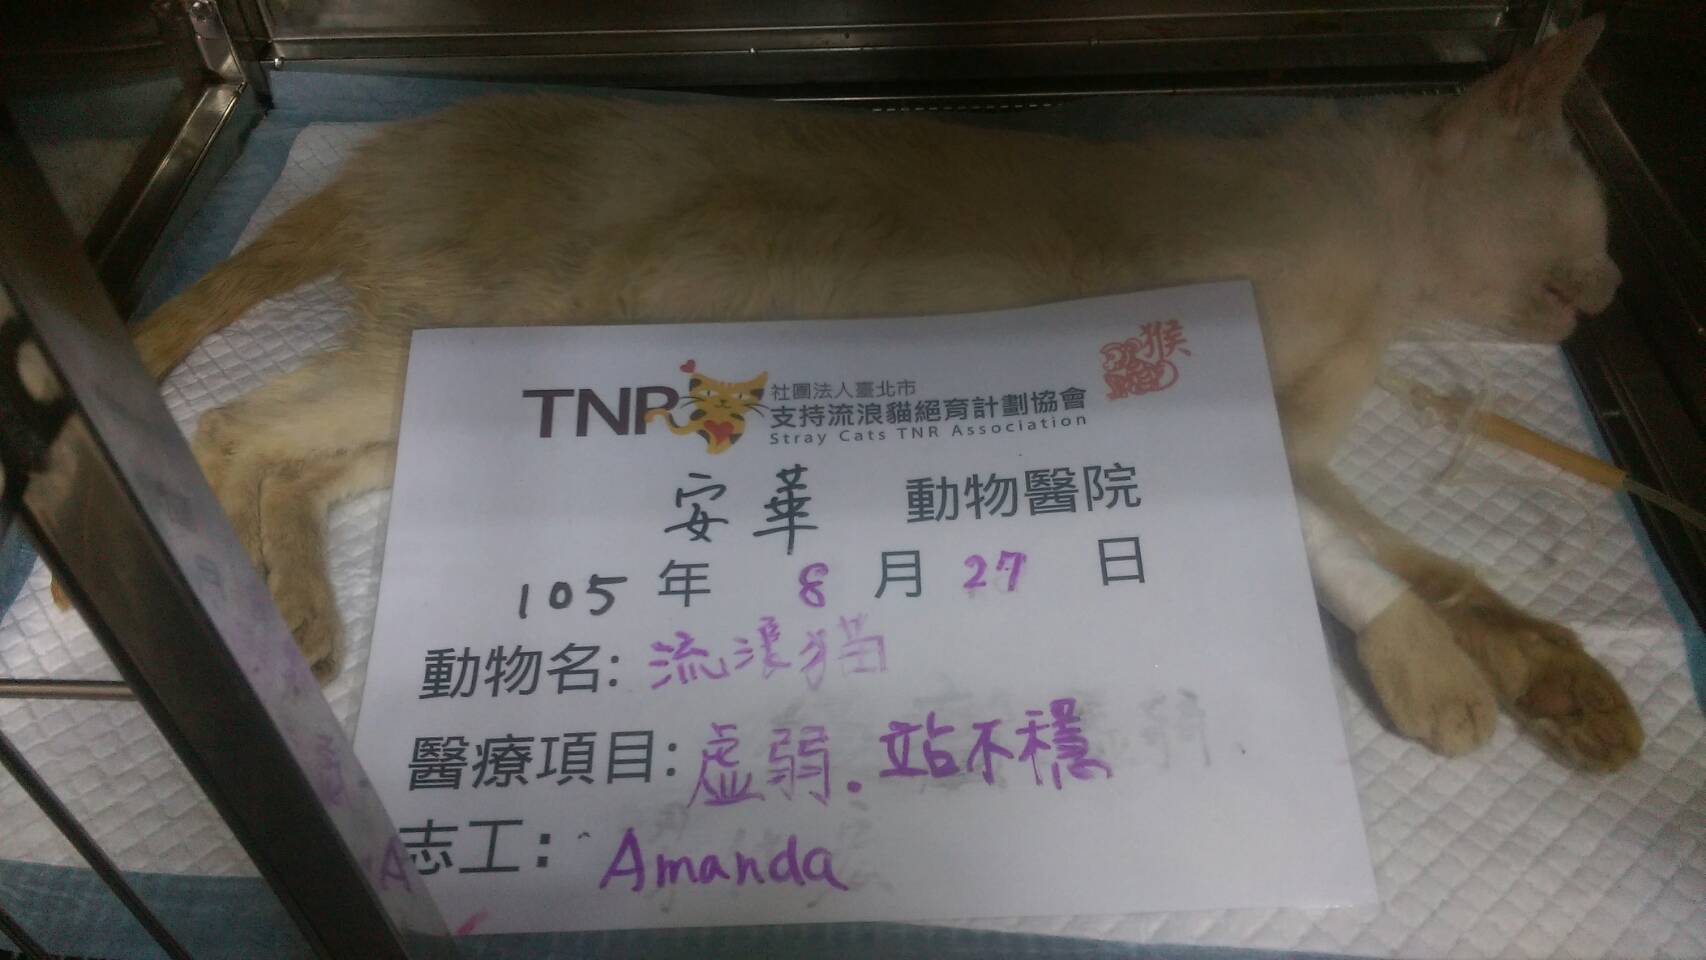 TNR 社團法人臺北市
支持流浪貓絕育計劃協會
Stray Cats TNR Association
猴
安華 動物醫院
105 年 8 月 27 日
動物名: 流浪猫
醫療項目: 虛弱.站不穩
志工: Amanda